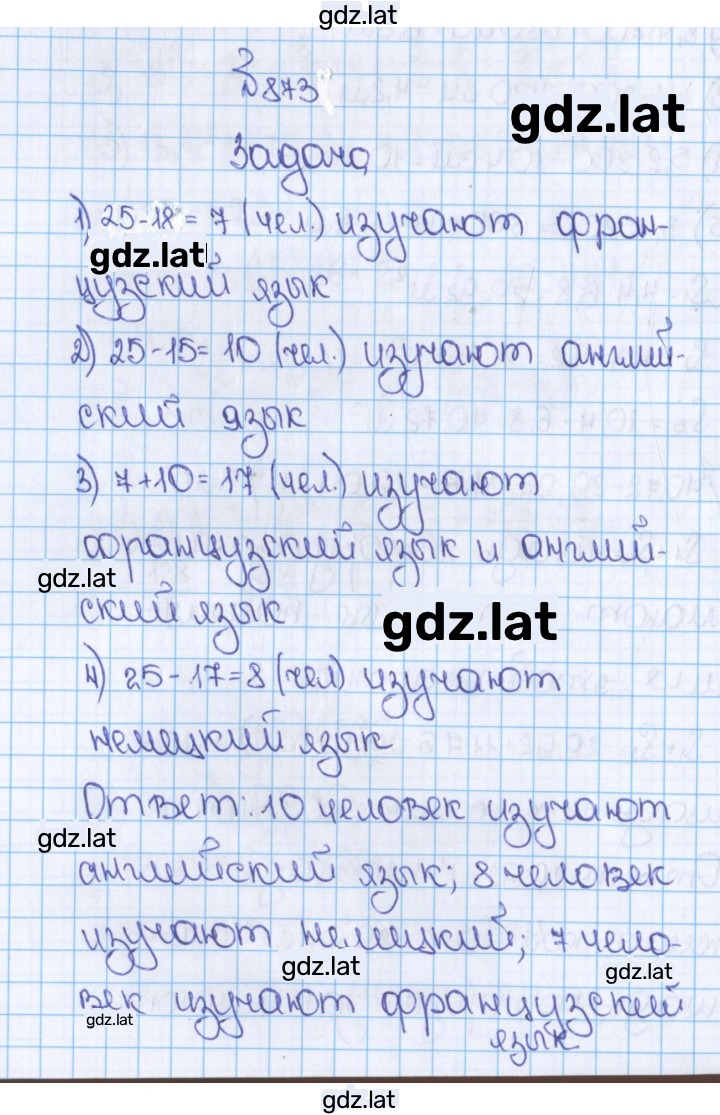 gdz.lat
№873
gdz.lat
Задача
1) 25-18= 7 (чел.) изучают фран-
gdz.lat
цузский язык
2) 25-15= 10 (чел.) изучают англий-
ский язык
3) 7+10= 17 (чел.) изучают
французский язык и англий-
gdz.lat
ский язык
gdz.lat
4) 25-17=8 (чел) изучают
немецкий язык
Ответ: 10 человек изучают
gdz.lat
английский язык; 8 человек
изучают немецкий; 7 чело-
gdz.lat
gdz.lat
век изучают французский
gdz.lat
язык
gdz.lat